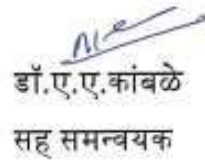 डॉ.ए.ए.कांबळे
सह समन्वयक